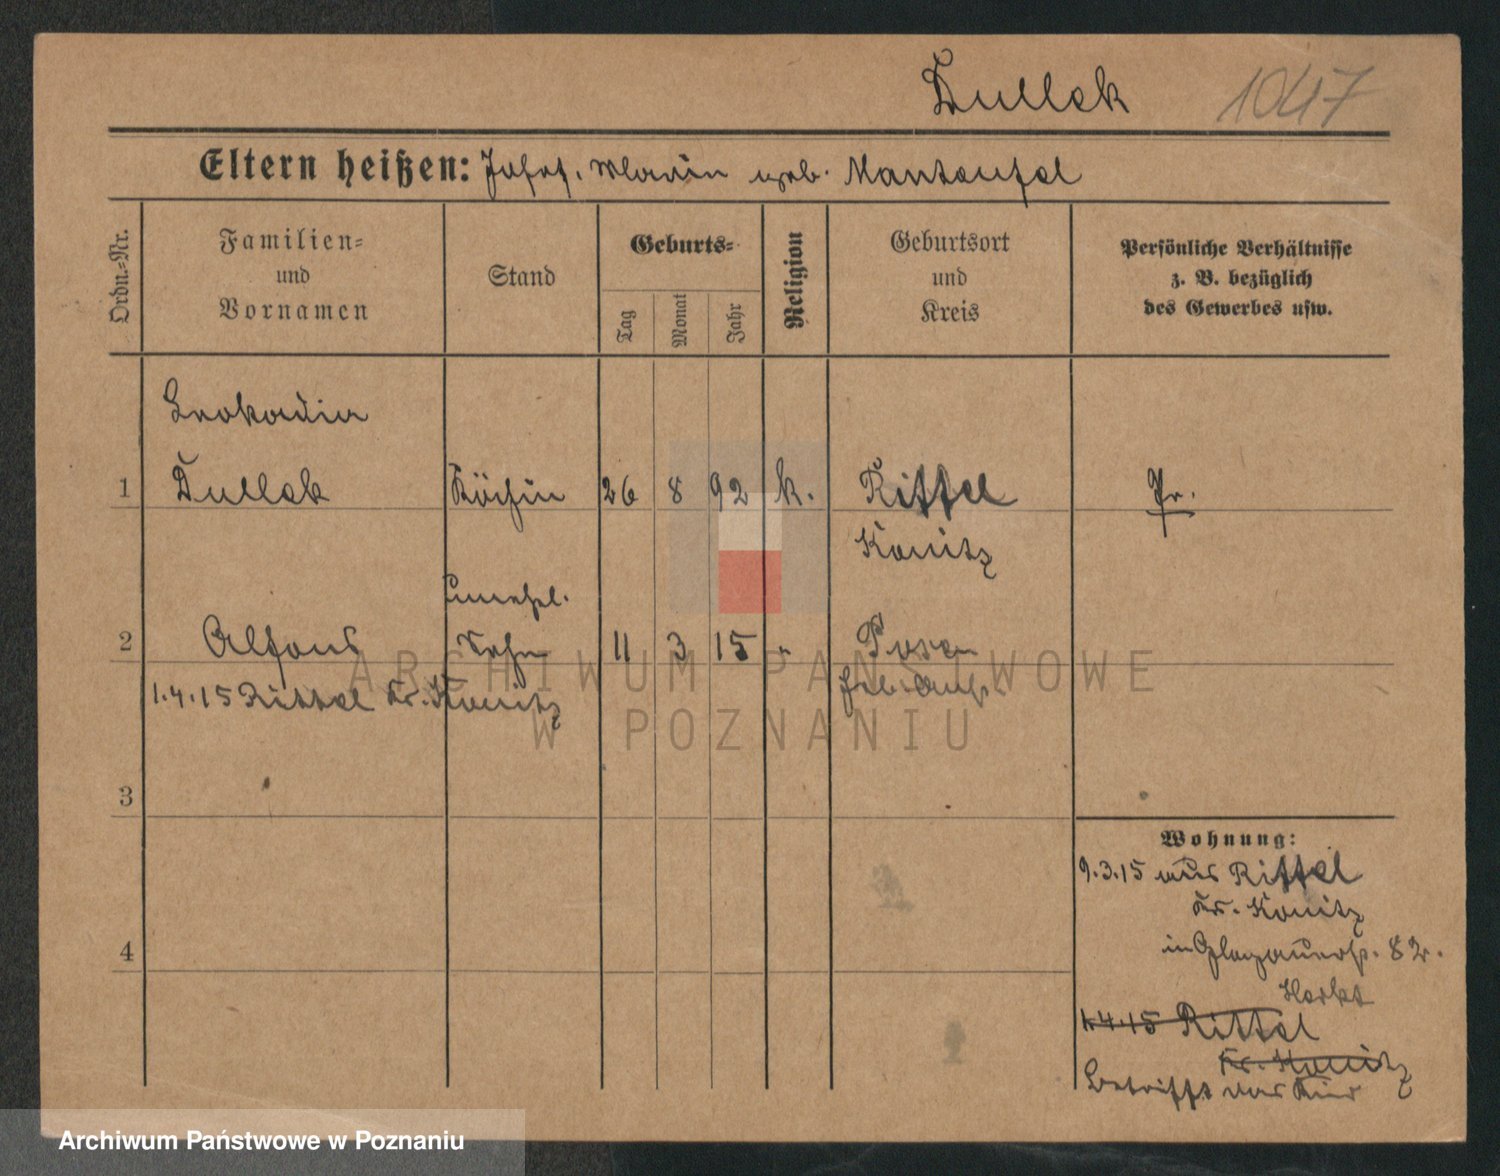 Dullek 1047
Eltern heißen: Josef, Marie geb. Manteufel
Ordn.=Nr.
Familien=
und
Vornamen
Stand
Geburts=
Tag
Monat
Jahr
Religion
Geburtsort
und
Kreis
Persönliche Verhältnisse
z. B. bezüglich
des Gewerbes usw.
Leokadia
1 Dullek Köchin 26 8 92 k. Rittel Pr.
Konitz
unehel.
2 Alfons Sohn 11 3 15 " Posen
1.4.15 Rittel Kr. Konitz
3
4
Wohnung:
9.3.15 aus Rittel
Kr. Konitz
in Glogauerstr. 82.
1.4.15 Rittel
Kr. Konitz
betrifft das Kind
ARCHIWUM PAŃSTWOWE
W POZNANIU
Archiwum Państwowe w Poznaniu